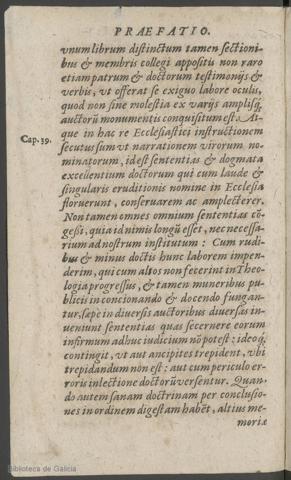 PRAEFATIO.
vnum librum distinctum tamen sectioni-
bus & membris collegi appositis non raro
etiam patrum & doctorum testimonijs &
verbis, vt offerat se exiguo labore oculis,
quod non sine molestia ex varijs amplisq́;
auctorũ monumentis conquisitum est. At-
que in hac re Ecclesiastici instructionem
Cap. 39.
secutus sum vt narrationem virorum no-
minatorum, id est sententias & dogmata
excellentium doctorum qui cum laude &
singularis eruditionis nomine in Ecclesia
floruerunt, conseruarem ac amplecterer.
Non tamen omnes omnium sententias cõ-
gesi, quia id nimis longũ esset, nec necessa-
rium ad nostrum institutum: Cum rudi-
bus & minus doctis hunc laborem impen-
derim, qui cum altos non fecerint in Theo-
logia progressus, & tamen muneribus pu-
blicis in concionando & docendo fungan-
tur, sæpè in diuersis auctoribus diuersas in-
ueniunt sententias quas secernere eorum
infirmum adhuc iudicium nõ potest: ideoq́;
contingit, vt aut ancipites trepident, vbi
trepidandum non est: aut cum periculo er-
roris in lectione doctorũ versentur. Quan-
do autem sanam doctrinam per conclusio-
nes in ordinem digestam habẽt, altius me-
moriæ
Biblioteca de Galicia